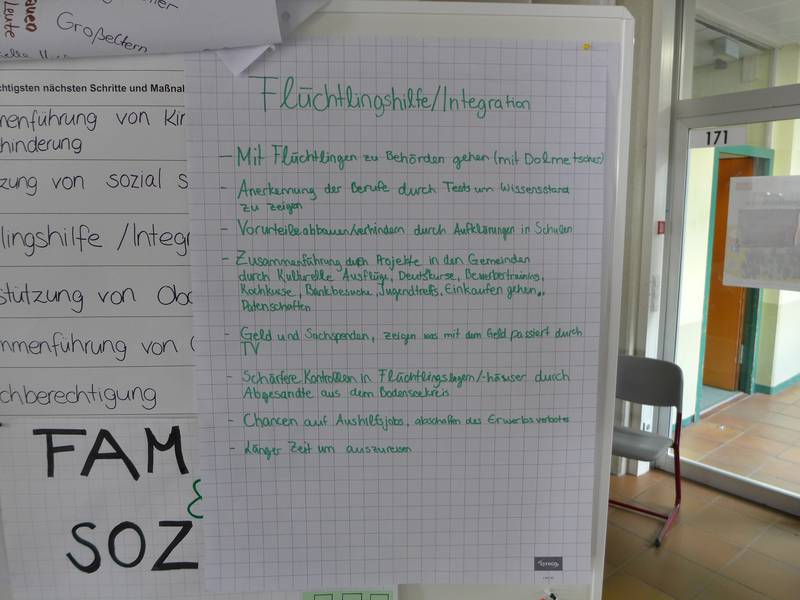 auen
Leute
Großeltern
chtigsten nächsten Schritte und Maßnal
menführung von Kin
hinderung
zung von sozial s
lingshilfe /Integr
stützung von Obd
mmenführung von
chberechtigung
FAM
&
SOZ
Flüchtlingshilfe/Integration
- Mit Flüchtlingen zu Behörden gehen (mit Dolmetscher)
- Anerkennung der Berufe durch Tests um Wissensstand
zu zeigen
- Vorurteile abbauen/verhindern durch Aufklärungen in Schulen
- Zusammenführung durch Projekte in den Gemeinden
durch Kulturelle Ausflüge, Deutskurse, Bewerbertraining,
Kochkurse, Bankbesuche, Jugendtreffs, Einkaufen gehen,
Patenschaften
- Geld und Sachspenden, zeigen was mit dem Geld passiert durch
TV
- Schärfere Kontrollen in Flüchtlingslagern/-häuser durch
Abgesandte aus dem Bodenseekreis
- Chancen auf Aushilfsjobs, abschaffen des Erwerbsverbotes
- Länger Zeit um auszureisen
171